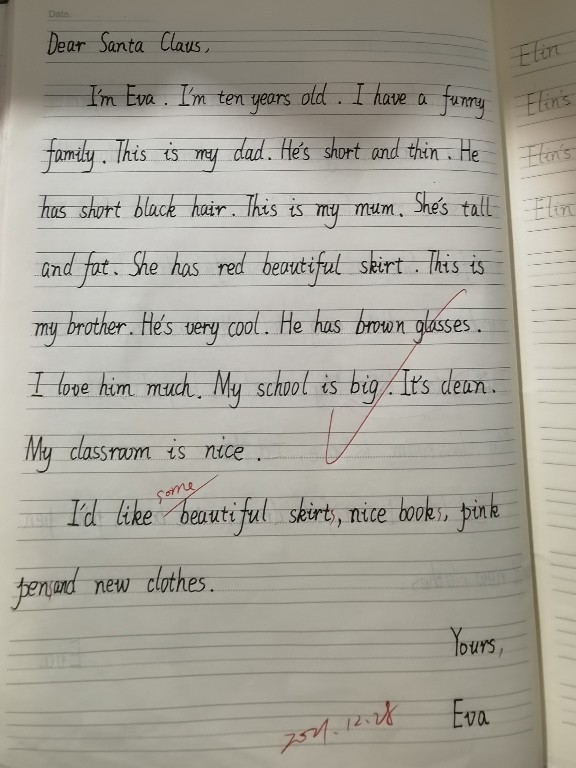 Date:
Dear Santa Claus,
I'm Eva. I'm ten years old. I have a funny
family. This is my dad. He's short and thin. He
has short black hair. This is my mum. She's tall
and fat. She has red beautiful skirt. This is
my brother. He's very cool. He has brown glasses.
I love him much. My school is big. It's clean.
My classroom is nice.
some
I'd like beautiful skirts, nice books, pink
pens,and new clothes.
Yours,
Eva
2021.12.28
Elin
Elin's
Elin's
Elin